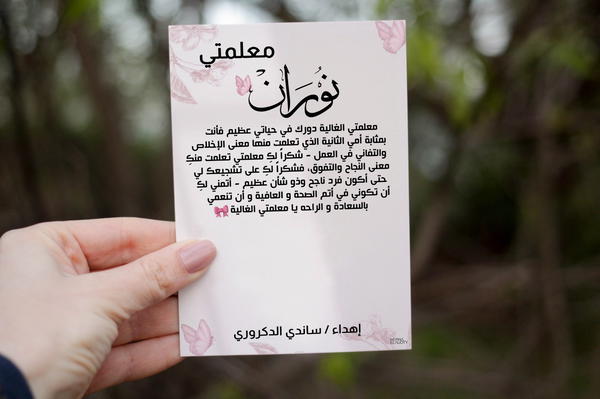 معلمتي
نُورَان
معلمتي الغالية دورك في حياتي عظيم فأنت
بمثابة أمي الثانية الذي تعلمت منها معنى الإخلاص
والتفاني في العمل - شكراً لكِ معلمتي تعلمت منكِ
معنى النجاح والتفوق، فشكراً لكِ على تشجيعك لي
حتى أكون فرد ناجح وذو شأن عظيم - أتمني لكِ
أن تكوني في أتم الصحة و العافية و أن تنعمي
بالسعادة و الراحه يا معلمتي الغالية🎀
إهداء / ساندي الدكروري